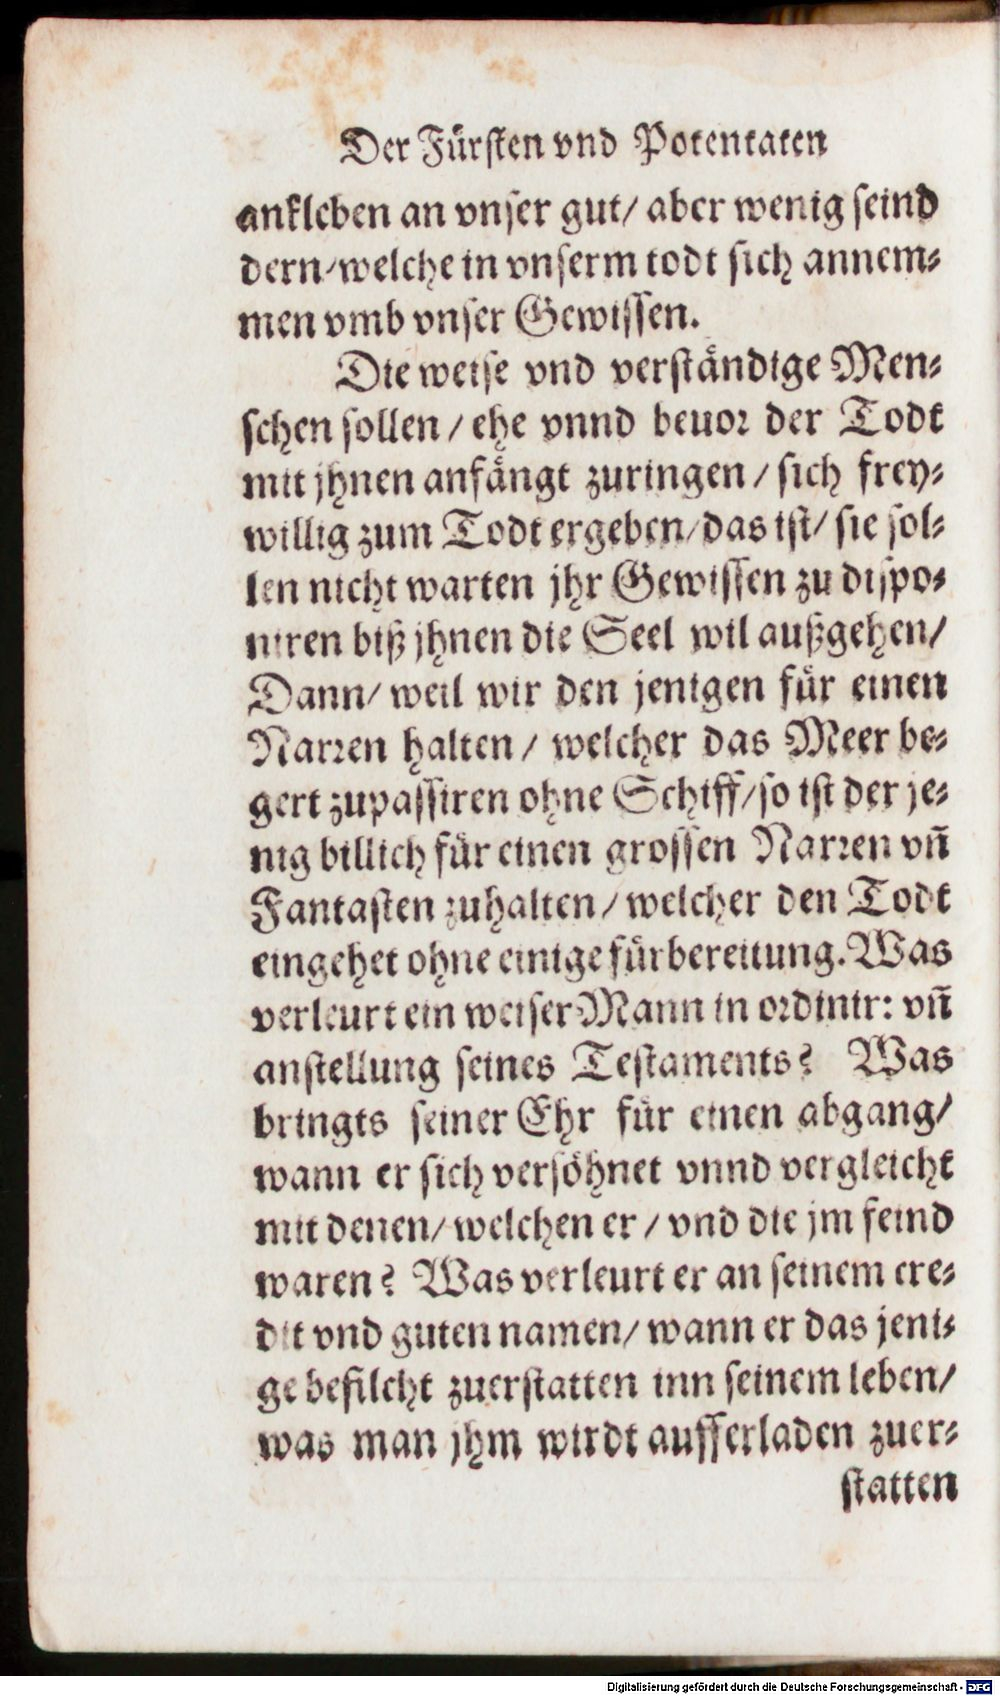 Der Fürsten vnd Potentaten
ankleben an vnser gut/ aber wenig seind
dern/welche in vnserm todt sich annem⸗
men vmb vnser Gewissen.
Die weise vnd verständige Men⸗
schen sollen / ehe vnnd beuor der Todt
mit jhnen anfängt zuringen / sich frey⸗
willig zum Todt ergeben/das ist/ sie sol⸗
len nicht warten jhr Gewissen zu dispo⸗
niren biß jhnen die Seel wil außgehen/
Dann/ weil wir den jenigen für einen
Narren halten / welcher das Meer be⸗
gert zupassiren ohne Schiff/so ist der je⸗
nig billich für einen grossen Narren vñ
Fantasten zuhalten / welcher den Todt
eingehet ohne einige fürbereitung. Was
verleurt ein weiser Mann in ordinir: vñ
anstellung seines Testaments? Was
bringts seiner Ehr für einen abgang/
wann er sich versöhnet vnnd vergleicht
mit denen/ welchen er / vnd die jm feind
waren? Was verleurt er an seinem cre⸗
dit vnd guten namen/ wann er das jeni⸗
ge befilcht zuerstatten inn seinem leben/
was man jhm wirdt aufferladen zuer⸗
statten
Digitalisierung gefördert durch die Deutsche Forschungsgemeinschaft - DFG